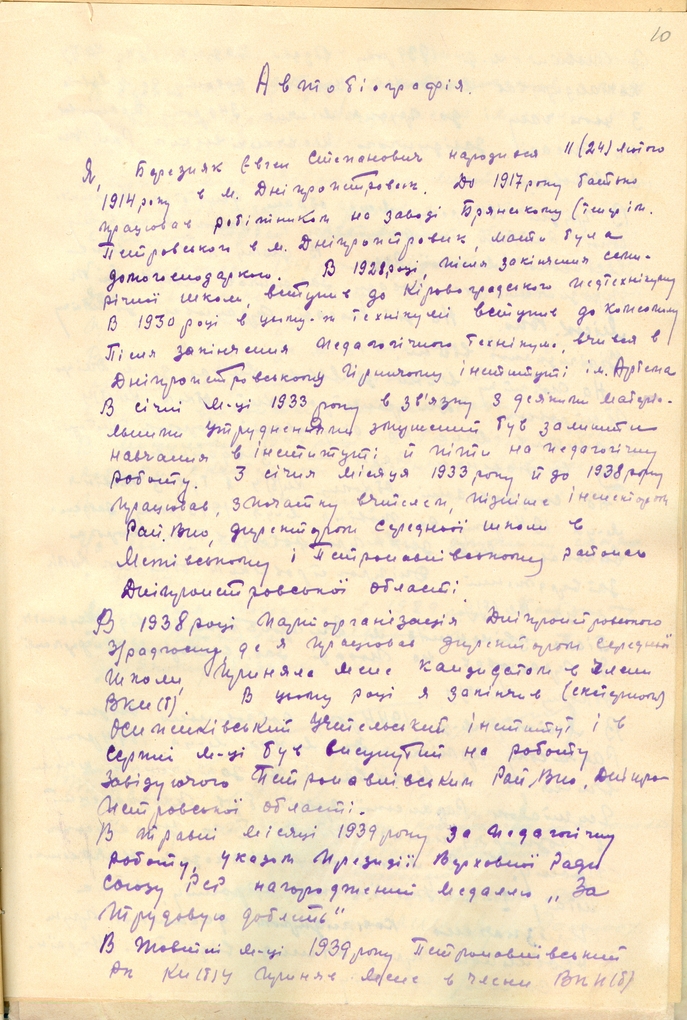 10
Автобіографія.
Я, Березняк Євген Степанович народився 11(24) лютого
1914 року в м. Дніпропетровськ. До 1917 року батько
працював робітником на заводі Брянському (тепер ім.
Петровського в м. Дніпропетровськ, мати була
домогосподаркою. В 1928 році, після закінчення семи-
річної школи, вступив до Кіровоградського педтехнікуму
В 1930 році в цьому-ж технікумі вступив до комсомолу
Після закінчення педагогічного технікуму, вчився в
Дніпропетровському Гірничому інституті ім. Артема
В січні м-ці 1933 року в зв'язку з деякими матеріа-
льними утрудненнями змушений був залишити
навчання в інституті й піти на педагогічну
роботу. З січня місяця 1933 року й до 1938 року
працював, з початку вчителем, пізніше інспектором
Рай.Вно, директором середньої школи в
Межівському і Петропавлівському районах
Дніпропетровської області.
В 1938 році парторганізація Дніпропетровського
де я працював директором середньої
школи, прийняла мене кандидатом в члени
ВКП(б). В цьому році я закінчив (екстерном)
Учительський інститут і в
серпні м-ці був висунутий на роботу
Завідуючого Петропавлівським Рай.Вно, Дніпро-
петровської області.
В травні місяці 1939 року за педагогічну
роботу, указом Президії Верховної Ради
Союзу РСР нагороджений медаллю „За
трудовую доблесть"
В Жовтні м-ці 1939 року Петропавлівський
РПК КП(б)У прийняв мене в члени ВКП(б)